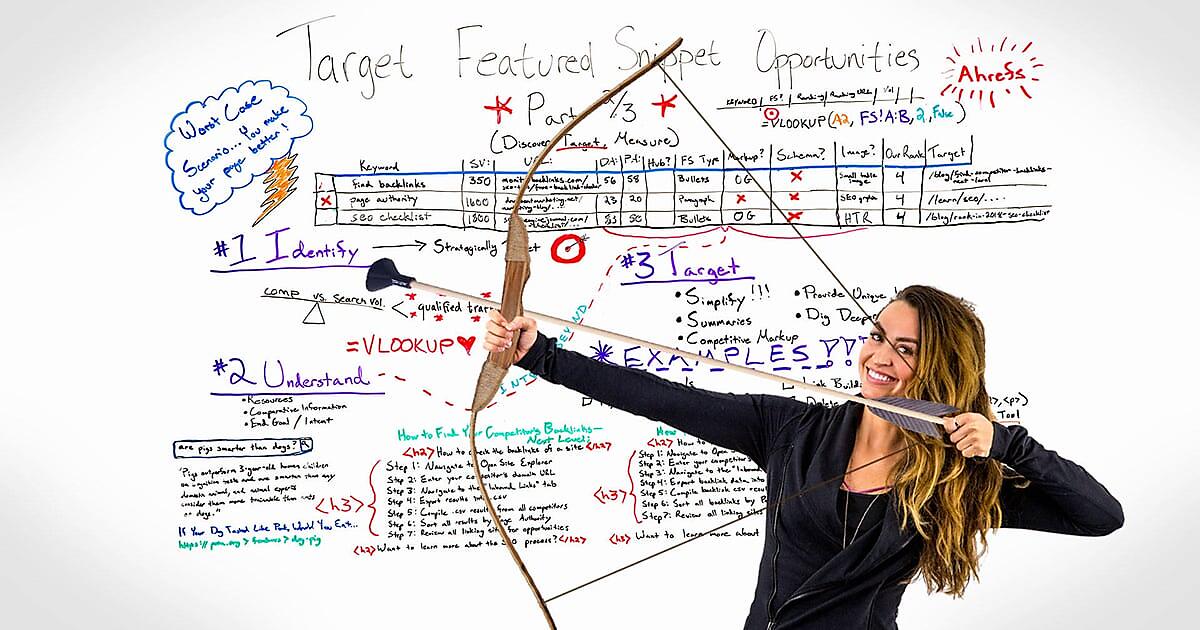 Target Featured Snippet Opportunities
Ahrefs
* Part 2/3 *
KEYWORD | FS? | Ranking | Ranking URL | Vol |
=VLOOKUP(A2, FS!A:B, 2, False)
(Discover, Target, Measure)
Worst Case
Scenario... You make
your page better!
Keyword | SV: | URL: | DA: | PA: | Hub? | FS Type | Markup? | Schema? | Image? | Our Rank | Target
find backlinks | 350 | 56 | 58 | Bullets | OG | X | Small table image | 4
X page authority | 1600 | 23 | 20 | Paragraph | X | X | SEO | 4 | /learn/seo/....
seo checklist | 1800 | 50 | Bullets | OG | X | HTR | 4
#1 Identify → Strategically
comp vs. search vol. < qualified
=VLOOKUP ♥
#2 Understand
• Resources
• Comparative Information
• End Goal / Intent
are pigs smarter than dogs?
"Pigs outperform 3-year-old human children
on cognition tests and are smarter than any
domestic animal, and animal experts
consider them more trainable than cats
or dogs."
If Your Dog Tasted Like Pork, Would You Eat...
#3 Target
• Simplify!!!
• Summaries
• Competitive Markup
• Provide Unique
• Dig Deeper
* EXAMPLES
Link
How to Find Your Competitor's Backlinks—
Next Level:
<h2> How to check the backlinks of a site </h2>
<h3>
Step 1: Navigate to Open Site Explorer
Step 2: Enter your competitor's domain URL
Step 3: Navigate to the "Inbound Links" tab
Step 4: Export results .csv
Step 5: Compile .csv results from all competitors
Step 6: Sort all results by Page Authority
Step 7: Review all linking sites for opportunities
<h2> Want to learn more about the SEO process? </h2>
<h2> How to
<h3>
Step 1: Navigate to Open
Step 2: Enter your competitor's
Step 3: Navigate to the
Step 4: Export backlink data, into
Step 5: Compile backlink .csv
Step 6: Sort all backlinks by
Step 7: Review all linking
Want to learn more about
<p>)
Tool